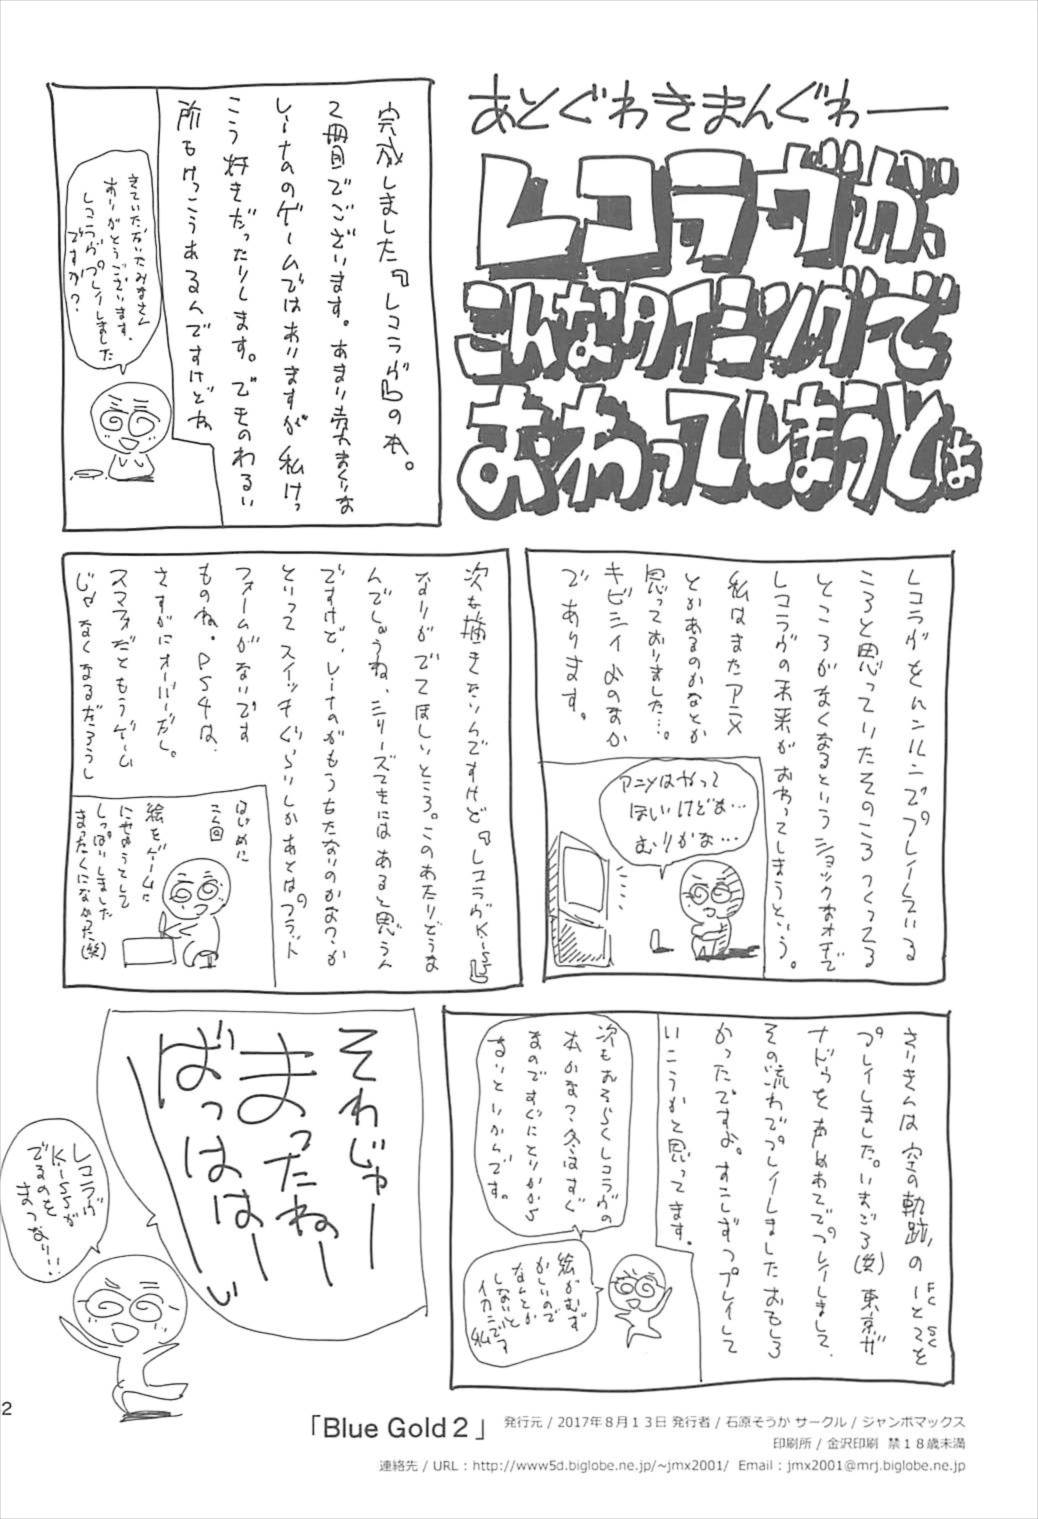 あとぐわきまんぐわー
レコラヴが、
こんなタイミングで
おわってしまうとは
完成しました『レコラヴ』の本。
2冊目でございます。あまり売れまくりな
レーナののゲームではありますが私けっ
こう好きだったりします。でものわるい
所もけっこうあるんですけどね
きていただいたみなさん
ありがとうございます、
レコラヴプレイしました
ですか?
レコラヴをハンルニでプレイしている
ころと思っていたそのころつくってる
ところがなくなるというショックなオチで
レコラヴの未来がおわってしまうという。
私はまたアニメ
とかあるのかなとか
思っておりました…。
キビシイよのなか
であります。
アニメはやって
ほしいけどな…
むりかな…
次も描きたいんですけど『レコラヴKiss』
なりがでてほしいところ。このあたりどうな
んでしょうね、シリーズてきにはあると思うん
ですけど、レーナのがもううちたないのかなつか
といってスイッチぐらいしかあとはプラット
フォームがないです
ものね。PS4は、
さすがにオーバーだし。
スマフォだともうゲーム
じゃなくなるだろうし
はじめに
こん回
絵をゲームに
にせようとして
しっぱいしました
まったくになかった(笑)
さいきんは空の軌跡、のFCとSCを
プレイしました。いまごろ(笑)東京ザ
ナドゥをあらためてプレイしまして、
その流れでプレイしましたおもしろ
かったですよ。すこしずつプレイして
いこうかと思ってます。
次もおそらくレコラヴの
本かなつ?冬はすぐ
なのですぐにとりかから
ないといかんです。
絵がむず
かしいので
なんとか
しないと
イカンです
私
それじゃー
まったねー
ばっはは〜い
レコラヴ
Kissが
でるのを
まつなり!!
2
「Blue Gold 2 」
発行元 / 2017年8月13日 発行者 / 石原そうか サークル / ジャンボマックス
印刷所 / 金沢印刷 禁18歳未満
連絡先 / URL : http://www5d.biglobe.ne.jp/~jmx2001/ Email : jmx2001@mrj.biglobe.ne.jp